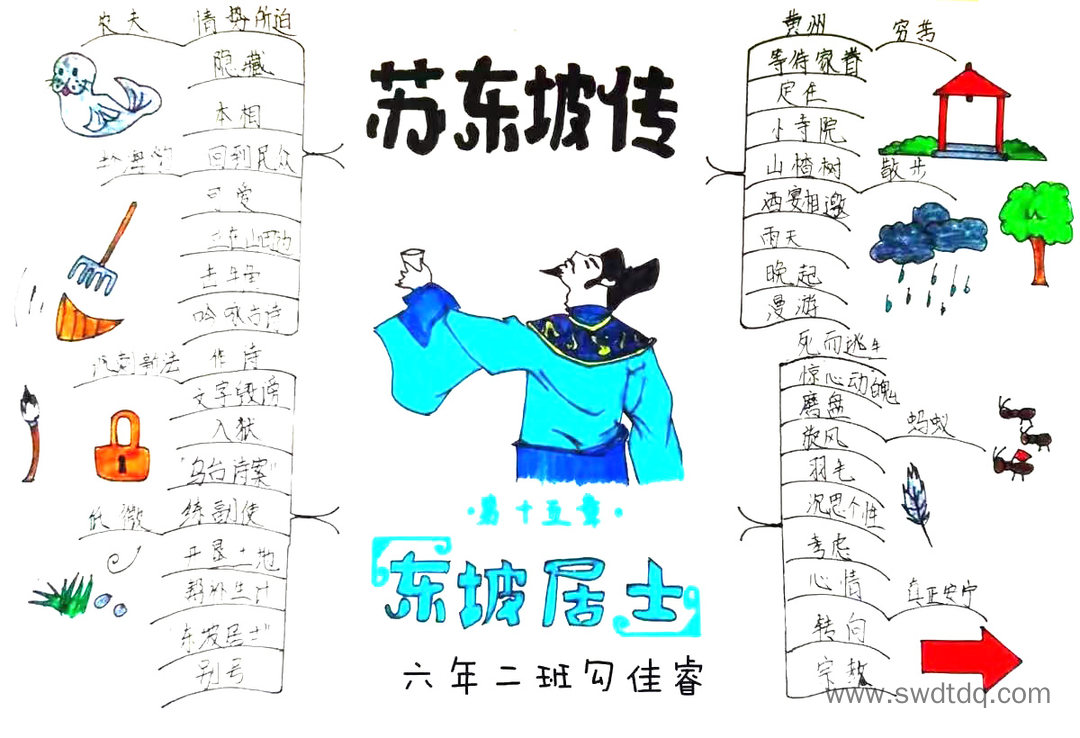 苏东坡传
第十五章
东坡居士
六年二班勾佳睿
黄州
穷苦
等待家眷
定住
小寺院
山楂树
散步
酒宴相邀
雨天
晚起
漫游
死而逃生
惊心动魄
磨盘
蚂蚁
旋风
羽毛
沉思个性
考虑
心情
真正安宁
转向
宗教
农夫
情势所迫
隐藏
本相
回到民众
可爱
去生活
吟咏古诗
讽刺新法
作诗
文字毁谤
入狱
"乌台诗案"
低微
练副使
开垦土地
帮补生计
"东坡居士"
别号
www.swdtdq.com